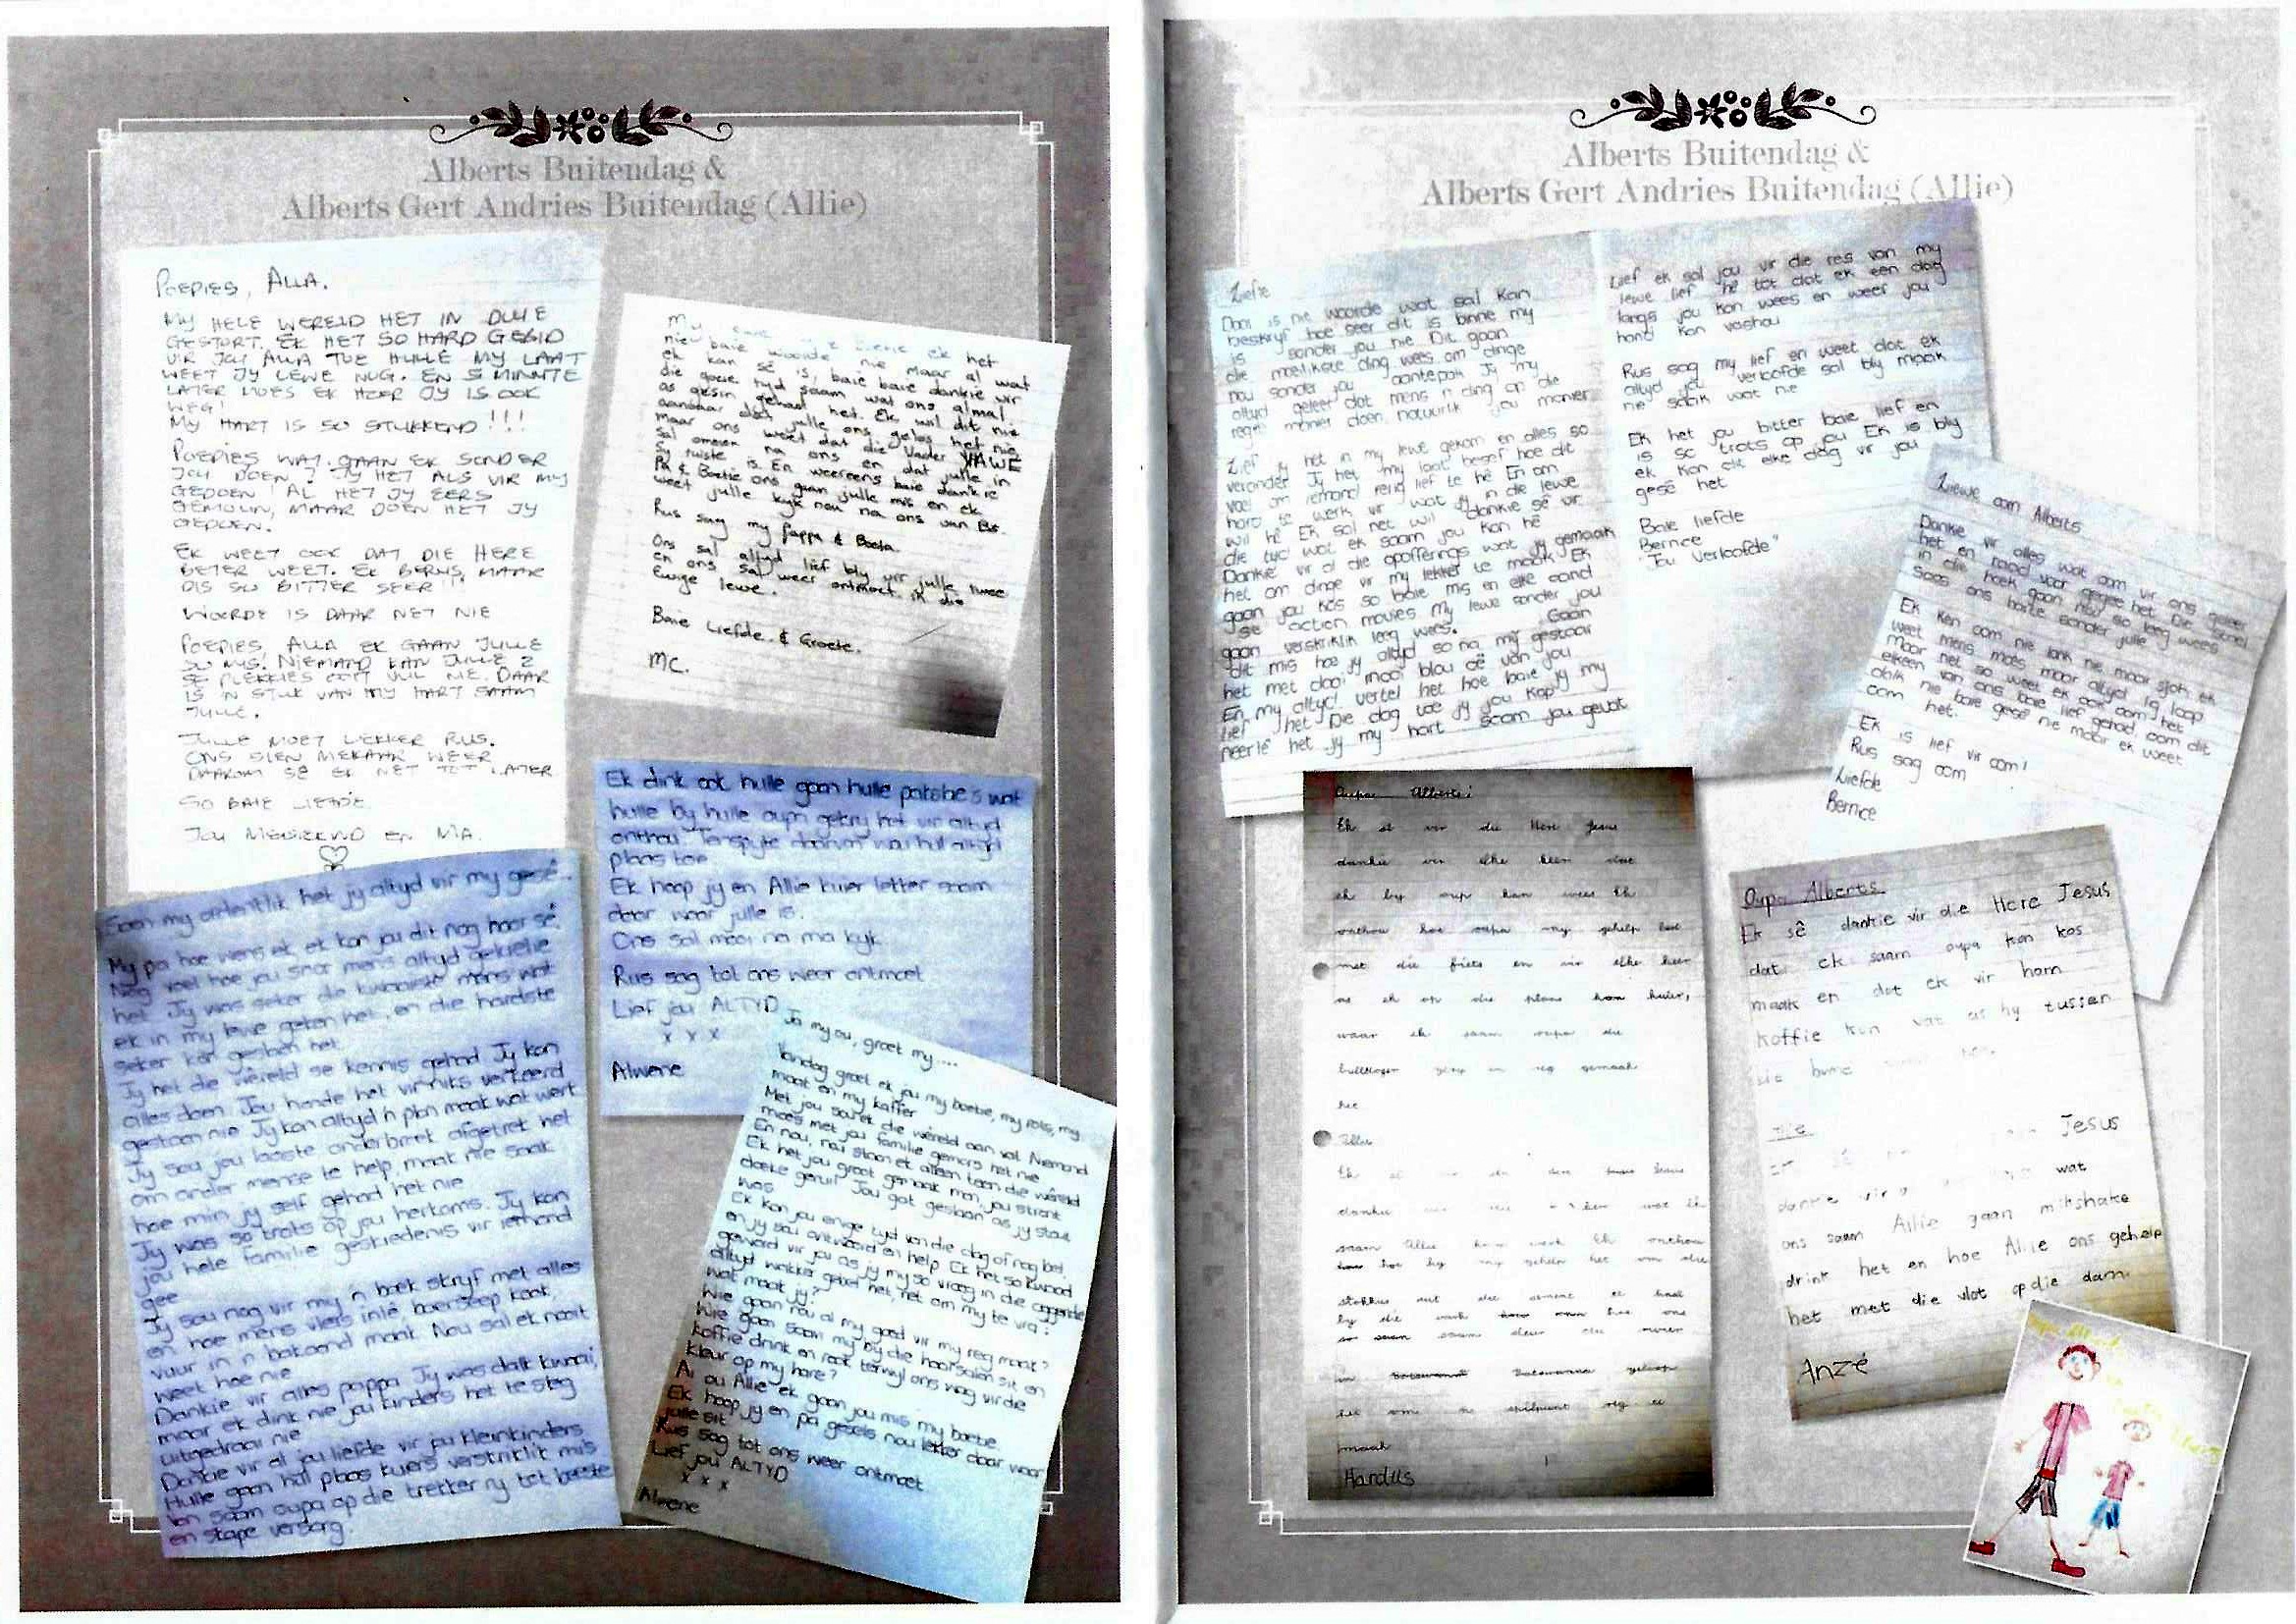 Alberts Buitendag &
Alberts Gert Andries Buitendag (Allie)
POEPIES, ALLA.
MY HELE WERELD HET IN DUIE
GESTORT. EK HET SO HARD GEBID
VIR JOU ALLA TOE HULLE MY LAAT
WEET JY LEWE NOG. EN 5 MINUTE
LATER MOES EK HOOR JY IS OOK
WEG!
MY HART IS SO STUKKEND!!!
POEPIES WAT GAAN EK SONDER
JOU DOEN? JY HET ALS VIR MY
GEDOEN! AL HET JY EERS
GEMOLIN, MAAR DOEN HET JY
GEDOEN.
EK WEET OOK DAT DIE HERE
BETER WEET. EK BERUS, MAAR
DIS SO BITTER SEER!!
WOORDE IS DAAR NET NIE
POEPIES, ALLA EK GAAN JULLE
SO MIS! NIEMAND KAN JULLE 2
SE PLEKKIES OOIT VUL NIE. DAAR
IS 'N STUK VAN MY HART SAAM
JULLE.
JULLE MOET LEKKER RUS.
ONS SIEN MEKAAR WEER
DAAROM SÊ EK NET TOT LATER
SO BAIE LIEFDE
JOU MEISIEKIND EN MA.
My ek het
nie baie woorde nie maar al wat
ek kan sê is, baie baie dankie vir
die goeie tyd saam wat ons almal
as gesin gehad het. Ek wil dit nie
aanvaar dat julle ons gelos het nie
maar ons weet dat die Vader YAWE
sal omsien na ons en dat julle in
Sy tuiste is. En weereens baie dankie
Pa & Boetie ons gaan julle mis en ek
weet julle kyk nou na ons van Bo.
Rus sag my Pappa & Boeta.
Ons sal altyd lief bly vir julle twee
en ons sal weer ontmoet in die
Ewige lewe.
Baie Liefde & Groete.
MC.
Soen my ordentlik het jy altyd vir my gesê.
My pa hoe wens ek, ek kon jou dit nog hoor sê.
Nog voel hoe jou snor mens altyd gekielie
het. Jy was seker die kwaaiste mens wat
ek in my lewe geken het, en die hardste
seker kon gesien het.
Jy het die wêreld se kennis gehad Jy kon
alles doen. Jou hande het vir niks verkeerd
gestaan nie. Jy kon altyd 'n plan maak wat werk
Jy sou jou laaste onderbroek afgetrek het
om ander mense te help, maak nie saak
hoe min jy self gehad het nie
Jy was so trots op jou herkoms. Jy kon
jou hele familie geskiedenis vir iemand
gee
Jy sou nog vir my 'n boek skryf met alles
en hoe mens vleis inlê, boerseep kook,
vuur in 'n bakoond maak. Nou sal ek nooit
weet hoe nie
Dankie vir alles pappa Jy was dalk kwaai,
maar ek dink nie jou kinders het te sleg
uitgedraai nie
Dankie vir al jou liefde vir jou kleinkinders
Hulle gaan hul plaas kuiers verskriklik mis
en saam oupa op die trekker ry tot beeste
en skape versorg.
Ek dink ook hulle gaan hulle pakslae's wat
hulle by hulle oupa gekry het vir altyd
onthou. Ten spyte daarvan wou hul altyd
plaas toe
Ek hoop jy en Allie kuier lekker saam
daar waar julle is.
Ons sal mooi na ma kyk
Rus sag tot ons weer ontmoet
Lief jou ALTYD
x x x
Alwene
Ja my ou, groet my....
Vandag groet ek jou my boetie, my rots, my
maat en my kaffer
Met jou sou ek die wêreld aan vat Niemand
moes met jou familie gemors het nie
En nou, nou staan ek alleen teen die wêreld
Ek het jou groot gemaak man, jou stront
doeke geruil Jou gat geslaan as jy stout
was
Ek kon jou enige tyd van die dag of nag bel
en jy sou antwoord en help Ek het so kwaad
geword vir jou as jy my so vroeg in die oggende
altyd wakker gebel het, net om my te vra:
Wat maak jy?
Wie gaan nou al my goed vir my reg maak?
Wie gaan saam my by die haarsalon sit en
koffie drink en rook terwyl ons wag vir die
kleur op my hare?
Ai ou Allie ek gaan jou mis my boetie
Ek hoop jy en pa gesels nou lekker daar waar
julle sit
Rus sag tot ons weer ontmoet
Lief jou ALTYD
x x x
Alwene
Alberts Buitendag &
Alberts Gert Andries Buitendag (Allie)
Liefie
Daar is nie woorde wat sal kan
beskryf hoe seer dit is binne my
is sonder jou nie Dit gaan
die moeilikste ding wees om dinge
nou sonder jou aantepak Jy my
altyd geleer dat mens 'n ding op die
regte manier doen natuurlik jou manier
Lief jy het in my lewe gekom en alles so
verander Jy het my laat besef hoe dit
voel om iemand reirig lief te hê En om
hard te werk vir wat jy in die lewe
wil hê Ek sal net wil dankie sê vir
die tyd wat ek saam jou kon hê
Dankie vir al die opofferings wat jy gemaak
het om dinge vir my lekker te maak Ek
gaan jou kos so baie mis en elke aand
se action movies My lewe sonder jou
gaan verskriklik leeg wees. Gaan
dit mis hoe jy altyd so na my gestaar
het met daai mooi blou oë van jou
En my altyd vertel het hoe baie jy my
lief het Die dag toe jy jou kop
neerlê het jy my hart saam jou gevat
Lief ek sal jou vir die res van my
lewe lief hê tot dat ek een dag
langs jou kan wees en weer jou
hand kan vashou
Rus sag my lief en weet dat ek
altyd jou verloofde sal bly maak
nie saak wat nie
Ek het jou bitter baie lief en
is so trots op jou Ek is bly
ek kon dit elke dag vir jou
gesê het
Baie liefde
Bernice
"Jou Verloofde"
Liewe oom Alberts
Danke vir alles wat oom vir ons geleer
het en raad voor gegee het Die stoel
in die hoek gaan nou so leeg wees
soos ons harte sonder julle
Ek ken oom nie lank nie, maar sjoh ek
weet mens moes maar altyd lig loop
Maar net so weet ek ook oom het
elkeen van ons baie lief gehad, oom dit
dalk nie baie gesê nie maar ek weet
oom het.
Ek is lief vir oom!
Rus sag oom
Liefde
Bernice
Oupa Alberts:
Ek sê vir die Here Jesus
dankie vir elke keer dat
ek by oupa kan wees Ek
onthou hoe oupa my gehelp het
met die fiets en vir elke keer
as ek op die plaas kon kuier,
waar ek saam oupa die
reg gemaak
het
Allie
Ek sê
dankie wat ek
saam Allie kon werk Ek onthou
hoe hy my gehelp het om die
Botswana
reg te
maak
Hardus
Oupa Alberts
Ek sê dankie vir die Here Jesus
dat ek saam oupa kon kos
maak en dat ek vir hom
koffie kon vat as hy tussen
die
Jesus
dankie vir wat
ons saam Allie gaan milkshake
drink het en hoe Allie ons gehelp
het met die vlot op die dam.
Anzé